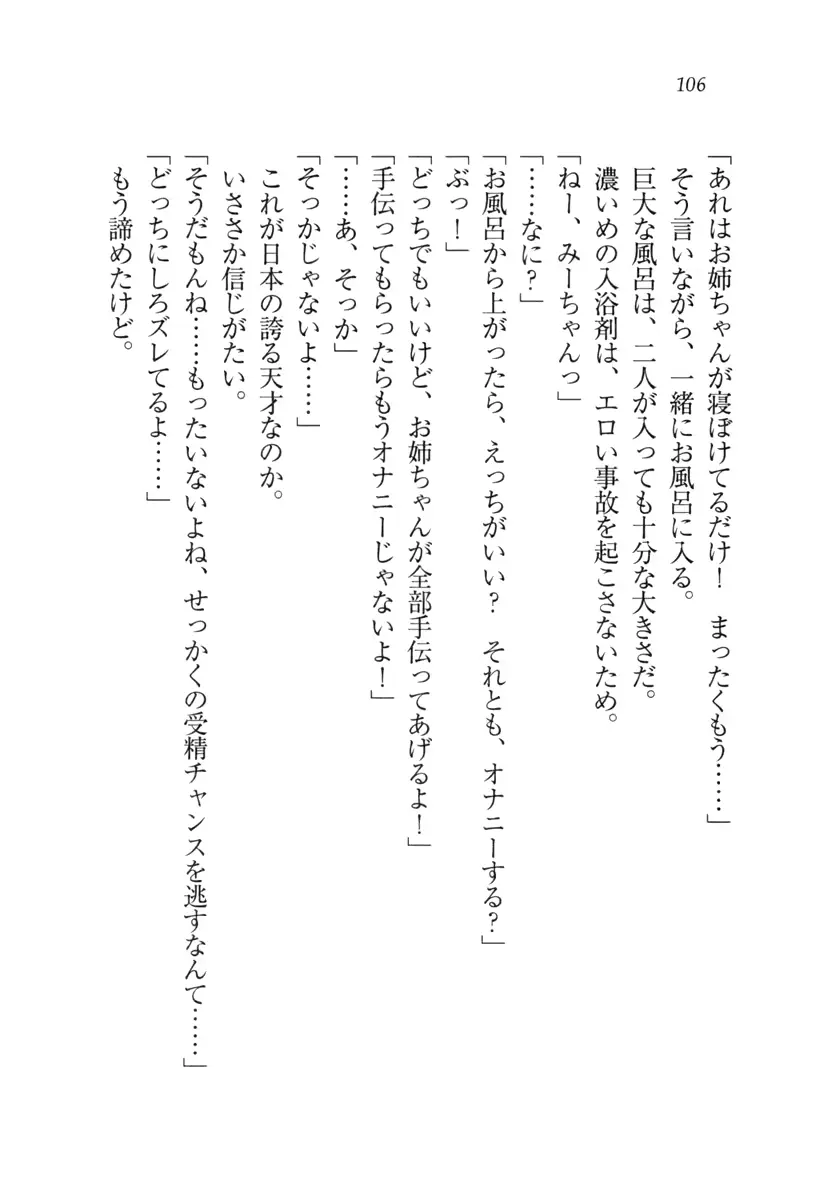 106
「あれはお姉ちゃんが寝ぼけてるだけ！　まったくもう……」
そう言いながら、一緒にお風呂に入る。
巨大な風呂は、二人が入っても十分な大きさだ。
濃いめの入浴剤は、エロい事故を起こさないため。
「ねー、みーちゃんっ」
「……なに？」
「お風呂から上がったら、えっちがいい？　それとも、オナニーする？」
「ぶっ！」
「どっちでもいいけど、お姉ちゃんが全部手伝ってあげるよ！」
「手伝ってもらったらもうオナニーじゃないよ！」
「……あ、そっか」
「そっかじゃないよ……」
これが日本の誇る天才なのか。
いささか信じがたい。
「そうだもんね……もったいないよね、せっかくの受精チャンスを逃すなんて……」
「どっちにしろズレてるよ……」
もう諦めたけど。